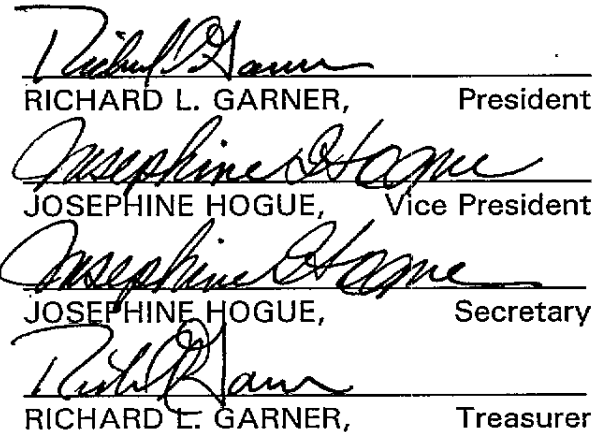 Richard L. Garner
RICHARD L. GARNER, President
Josephine Hogue
JOSEPHINE HOGUE, Vice President
Josephine Hogue
JOSEPHINE HOGUE, Secretary
Richard L. Garner
RICHARD L. GARNER, Treasurer